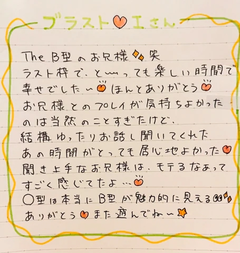 ブラスト🧡Iさん
The B型のお兄様✨笑
ラスト枠で、と〜っても楽しい時間で
幸せでした〜🧡ほんとありがとう🧡
お兄様とのプレイが気持ちよかった
のは当然のことすぎたけど、
結構ゆったりお話し聞いてくれた
あの時間がとっても居心地よかった🧡
聞き上手なお兄様は、モテるなぁって
すごく感じてたよ…🧡
○型は本当にB型が魅力的に見える👀✨
ありがとう🧡また遊んでね〜⭐